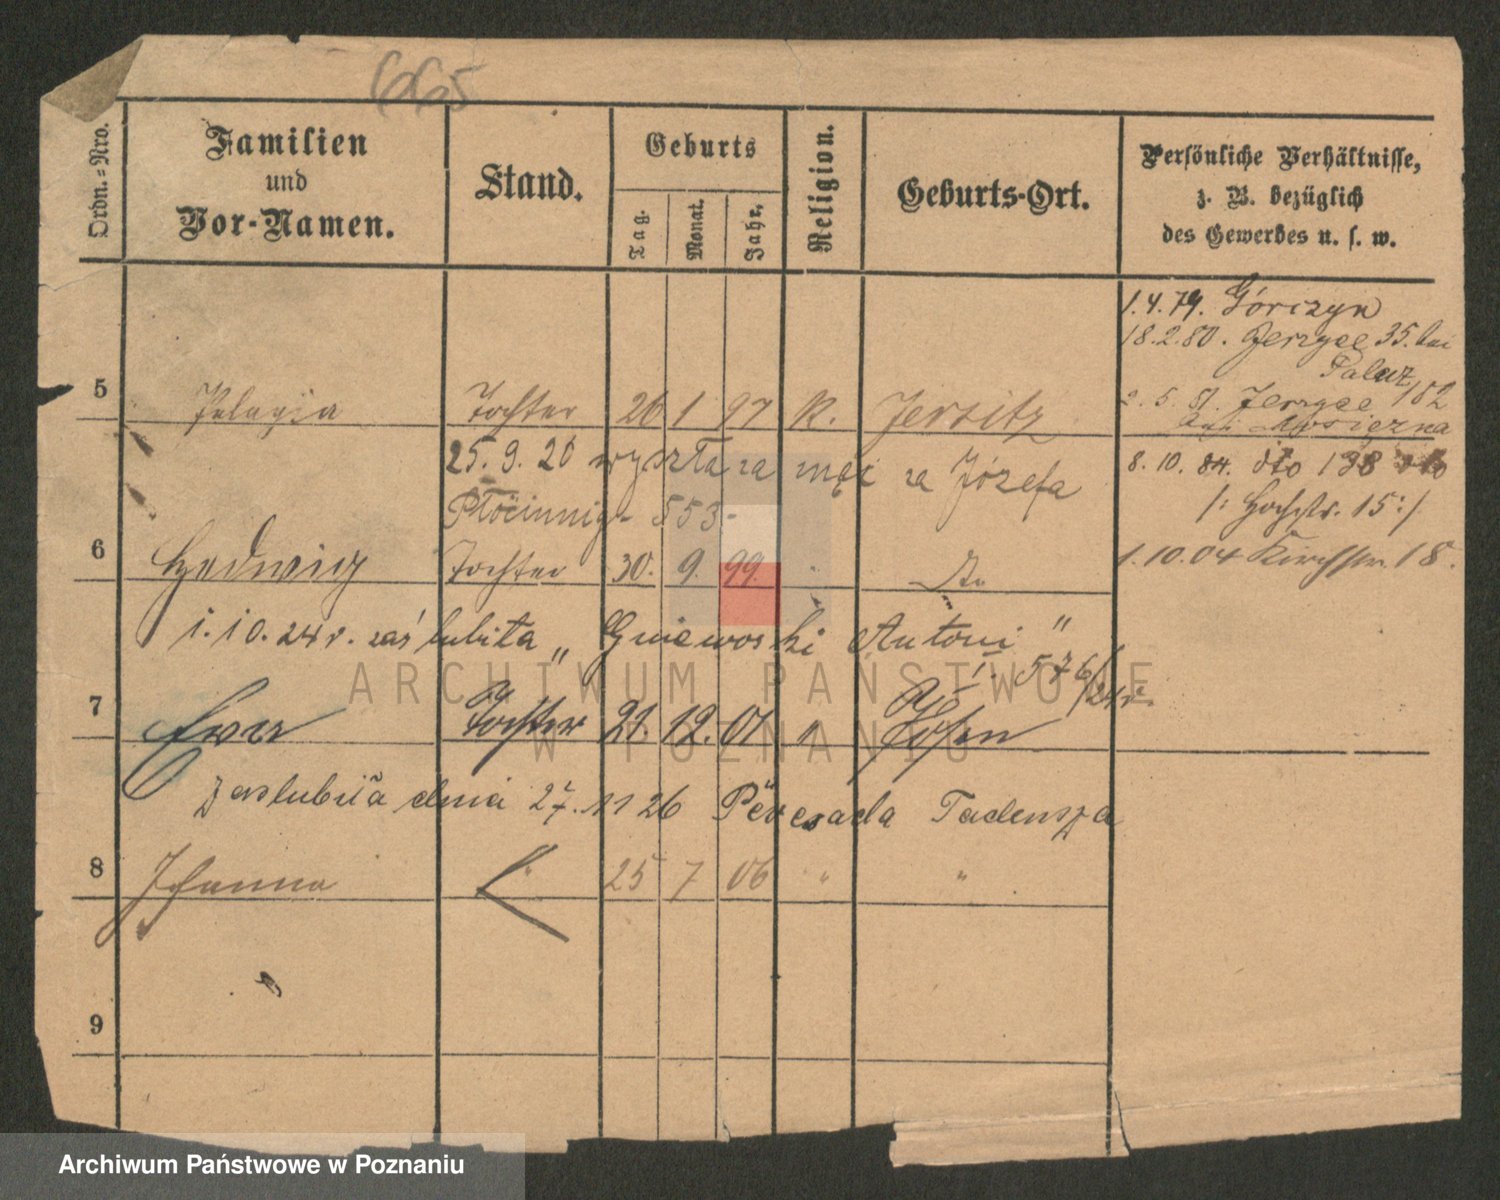 665
Ordn.-Nro.
Familien
und
Vor-Namen.
Stand.
Geburts
Tag.
Monat.
Jahr.
Religion.
Geburts-Ort.
Persönliche Verhältnisse,
z. B. bezüglich
des Gewerbes u. s. w.
1.4.79. Górczyn
18.2.80. Jerzyce 35. bei
Palacz
2.5.81. Jerzyce 182
bei
8.10.84. dto 138 dto
/: Hochstr. 15 :/
1.10.04 Kirchstr. 18.
5 Pelagia Tochter 26 1 97 K. Jersitz
25.9.20 wyszła za mąż za Józefa
553-
6 Hedwig Tochter 30. 9. 99. " do
1.10.24 r. zaślubiła „Gniewoski Antoni"
576/24 r.
7 Ewa Tochter 21. 12. 01 " Posen
Zaslubiła dnia 27.11 26 Tadeusza
8 Johanna " 25 7 06 " "
9
ARCHIWUM PAŃSTWOWE
W POZNANIU
Archiwum Państwowe w Poznaniu